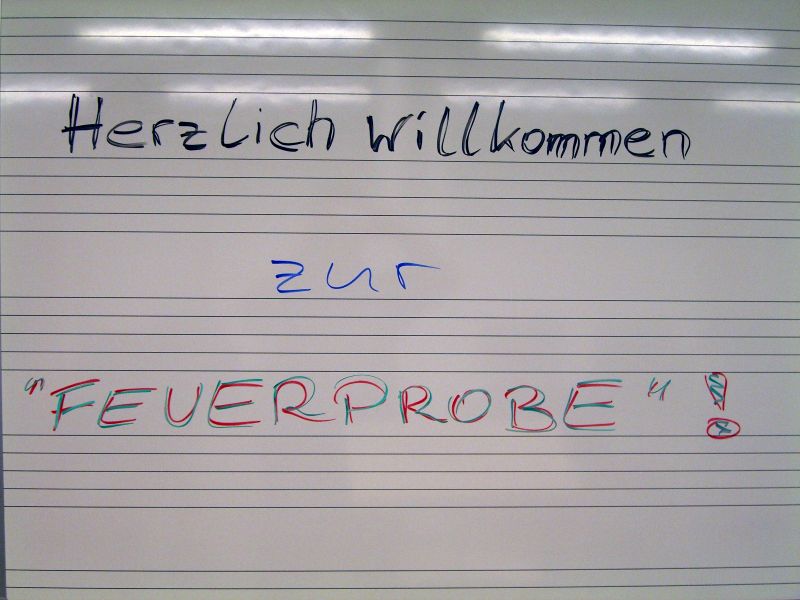 Herzlich willkommen
zur
"FEUERPROBE"!